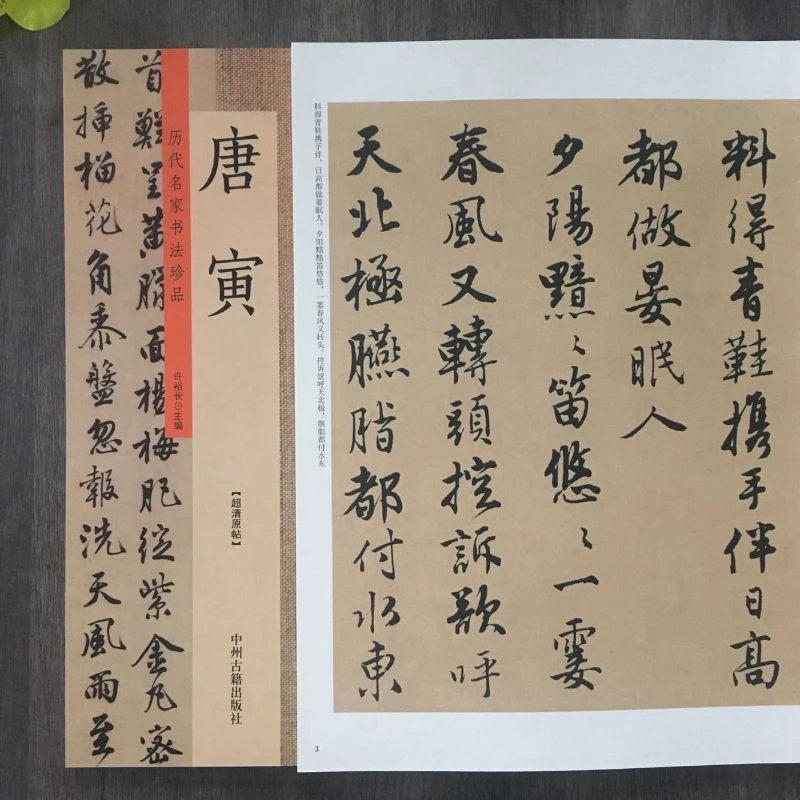 唐寅
历代名家书法珍品
许裕长⊙主编
【超清原帖】
中州古籍出版社
首呈黄腊面楊梅肥綻紫金丸密
散插榴花角黍盤忽報洗天風雨至
料得青鞋携手伴日高
都做晏眠人
夕陽黯〻笛悠〻一霎
春風又轉頭控訴欲呼
天北極臙脂都付水東
料得青鞋携手伴，日高都做晏眠人。夕阳黯黯笛悠悠，一霎春风又转头。控诉欲呼天北极，胭脂都付水东
3